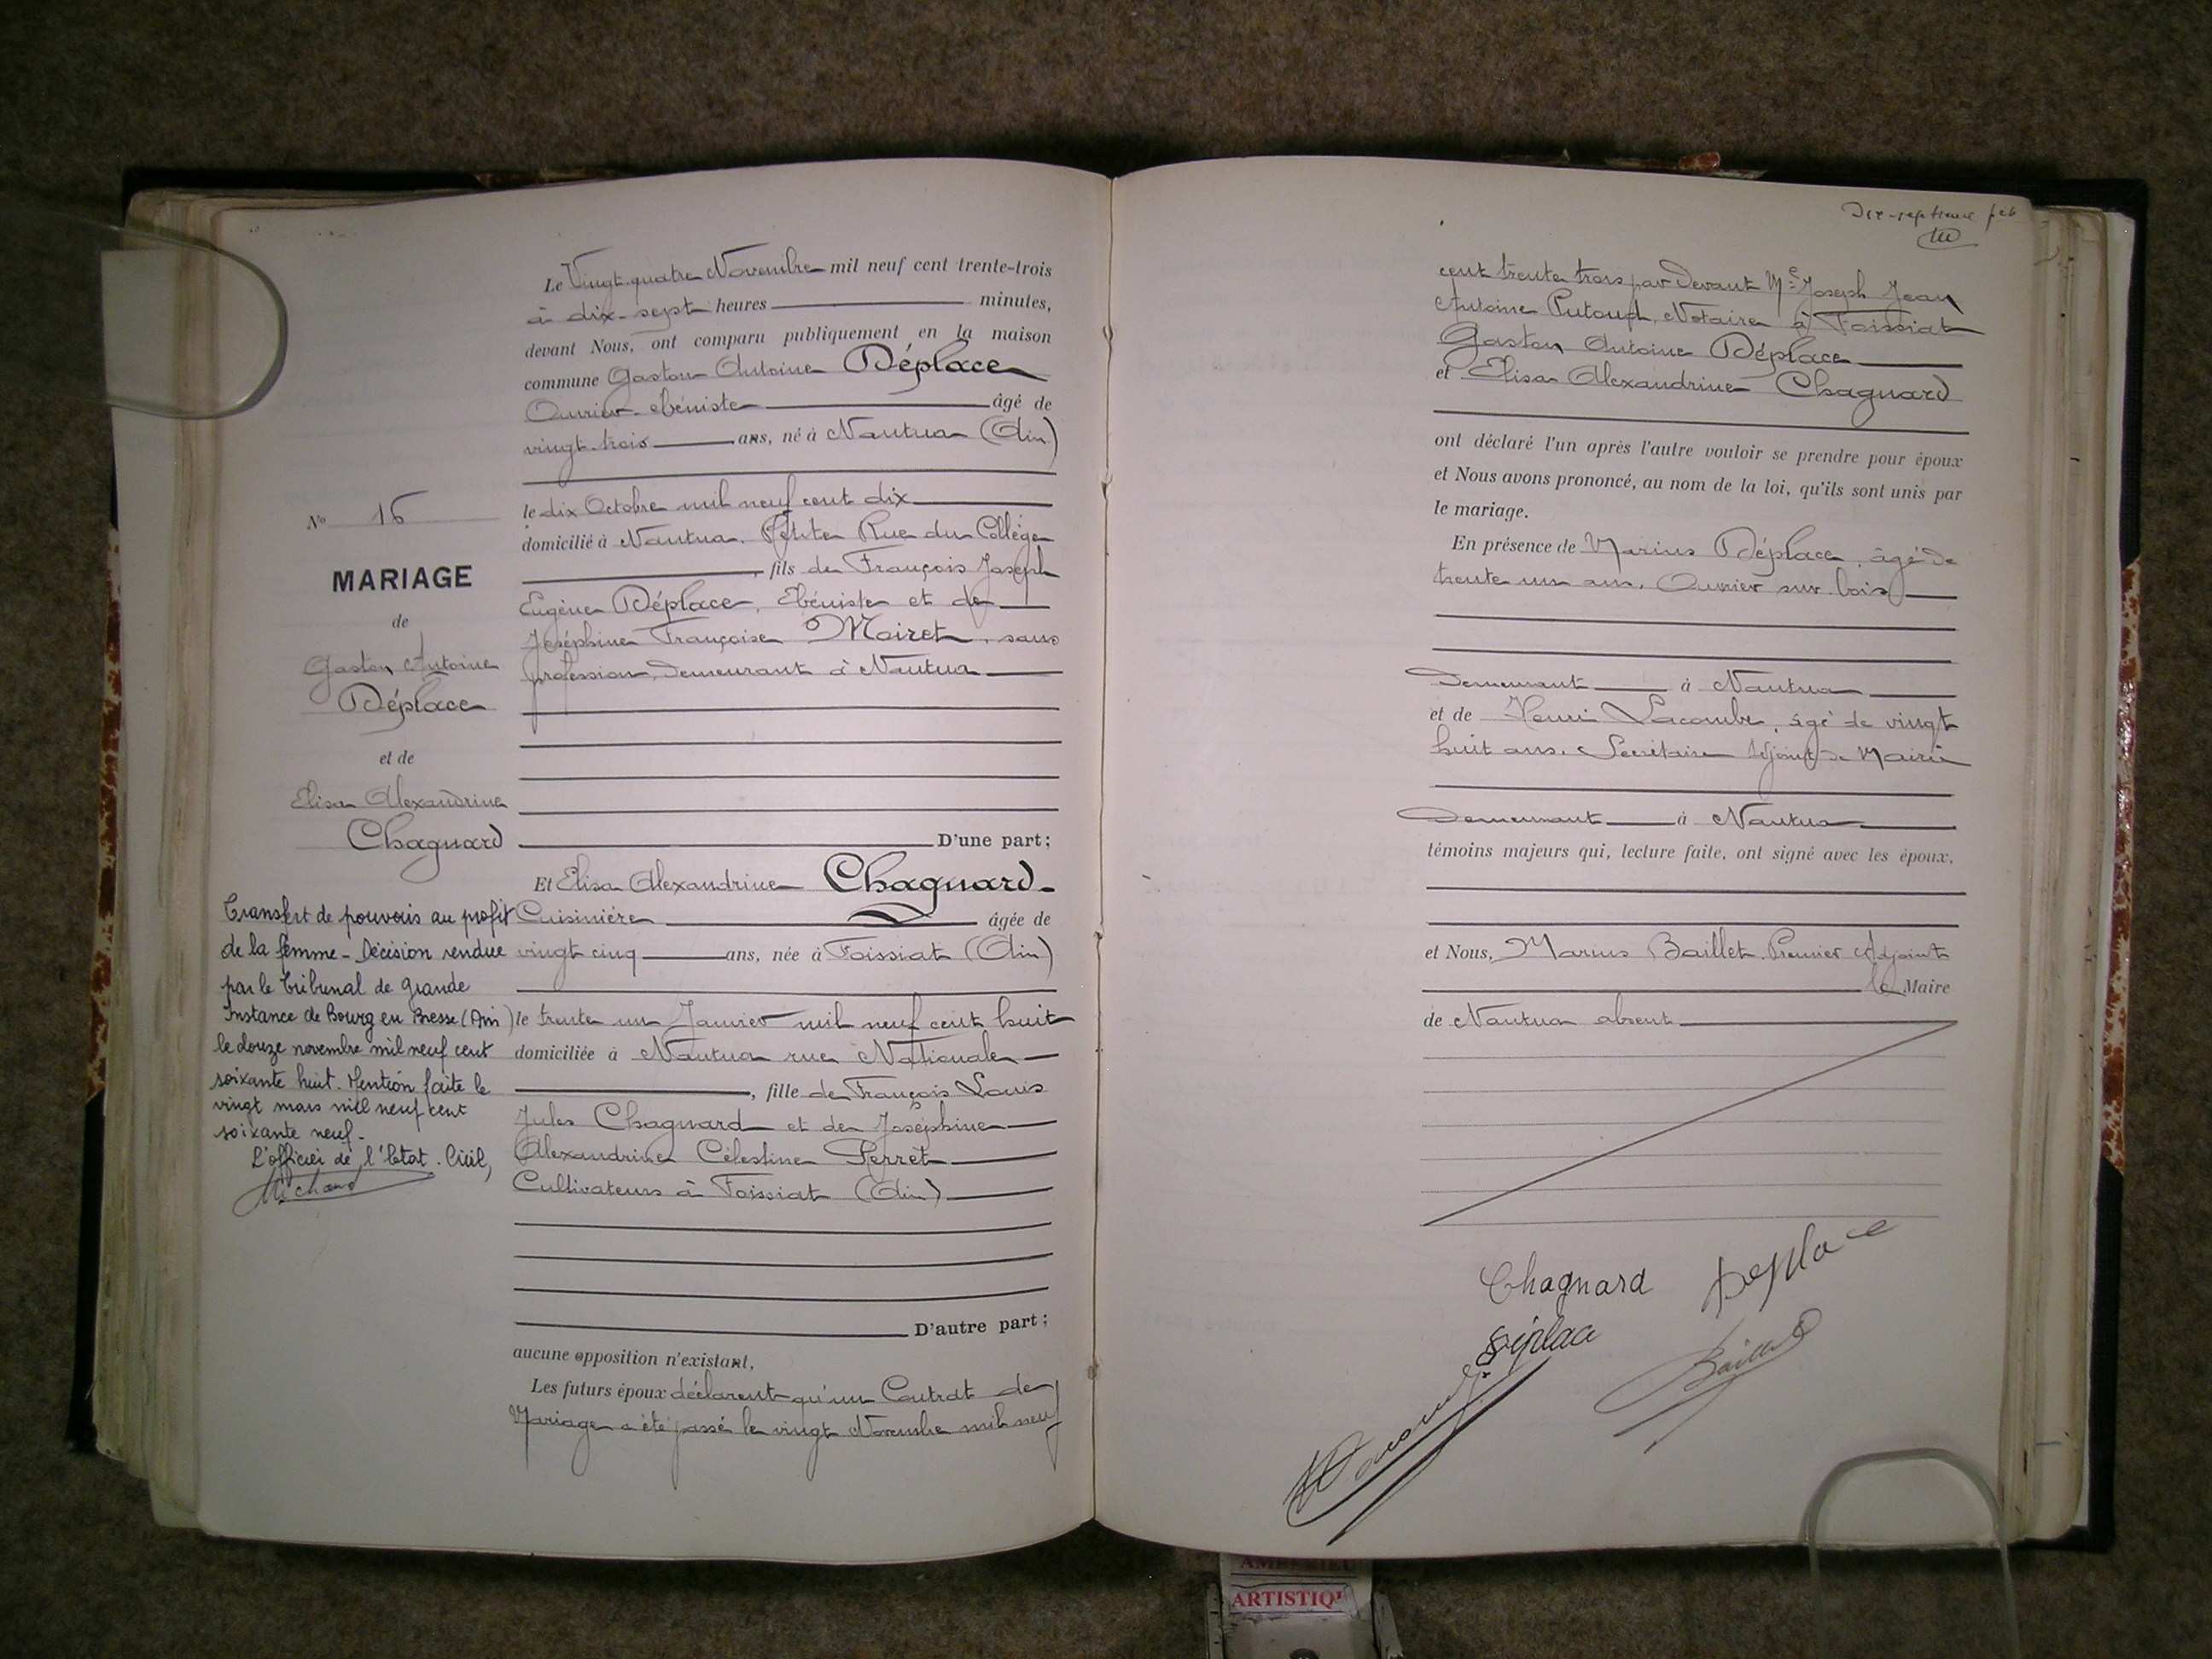 Le Vingt quatre Novembre mil neuf cent trente-trois
à dix-sept heures minutes,
devant Nous, ont comparu publiquement en la maison
commune Gaston Antoine Déplace
Ouvrier ébéniste âgé de
vingt-trois ans, né à Nantua (Ain)
le dix Octobre mil neuf cent dix
domicilié à Nantua, Petite Rue du Collège
, fils de François Joseph
Eugène Déplace, Ebéniste et de
Joséphine Françoise Mairet, sans
profession, demeurant à Nantua
D'une part;
Et Elisa Alexandrine Chagnard
Cuisinière âgée de
vingt cinq ans, née à Foissiat (Ain)
le trente un Janvier mil neuf cent huit
domiciliée à Nantua rue Nationale
, fille de François Louis
Jules Chagnard et de Joséphine
Alexandrine Célestine Perret
Cultivateurs à Foissiat (Ain)
D'autre part;
aucune opposition n'existant,
Les futurs époux déclarent qu'un Contrat de
Mariage a été passé le vingt Novembre mil neuf
No 16
MARIAGE
de
Gaston Antoine
Déplace
et de
Elisa Alexandrine
Chagnard
Transfert de pouvoirs au profit
de la femme - Décision rendue
par le Tribunal de Grande
Instance de Bourg en Bresse (Ain)
le douze novembre mil neuf cent
soixante huit. Mention faite le
vingt mars mil neuf cent
soixante neuf.
L'officier de l'Etat. Civil,
Michaud
Dix-septième
cent trente trois par devant Me Joseph Jean
Antoine Notaire à Foissiat
Gaston Antoine Déplace
et Elisa Alexandrine Chagnard
ont déclaré l'un après l'autre vouloir se prendre pour époux
et Nous avons prononcé, au nom de la loi, qu'ils sont unis par
le mariage.
En présence de Marius Déplace, âgé de
trente un ans, Ouvrier sur bois
Demeurant à Nantua
et de Henri Lacombe, âgé de vingt
huit ans, Secrétaire adjoint de Mairie
Demeurant à Nantua
témoins majeurs qui, lecture faite, ont signé avec les époux,
et Nous, Marius Baillet, Premier Adjoint
le Maire
de Nantua absent
Chagnard Deplace
Déplace
Baillet
ARTISTIQ